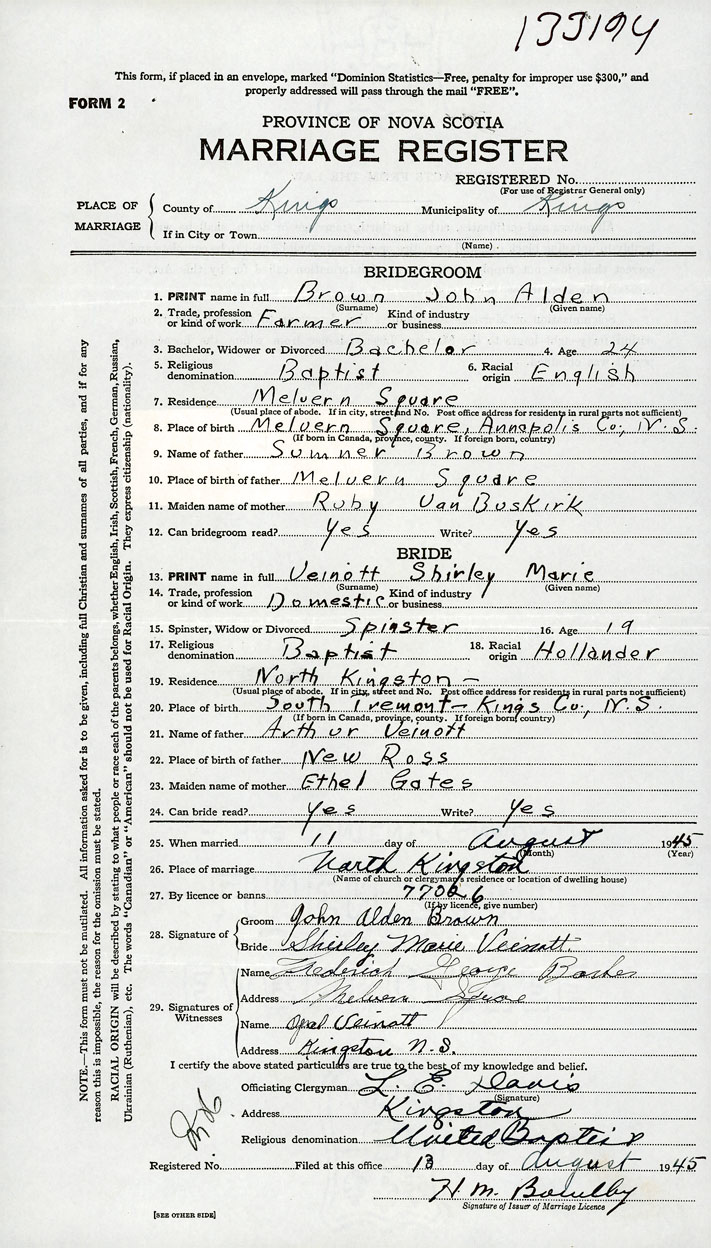 133194
This form, if placed in an envelope, marked "Dominion Statistics—Free, penalty for improper use $300," and
properly addressed will pass through the mail "FREE".
FORM 2
PROVINCE OF NOVA SCOTIA
MARRIAGE REGISTER
REGISTERED No.
(For use of Registrar General only)
PLACE OF MARRIAGE
County of Kings Municipality of Kings
If in City or Town
(Name)
BRIDEGROOM
1. PRINT name in full Brown John Alden
(Surname) (Given name)
2. Trade, profession or kind of work Farmer Kind of industry or business
3. Bachelor, Widower or Divorced Bachelor 4. Age 24
5. Religious denomination Baptist 6. Racial origin English
7. Residence Melvern Square
(Usual place of abode. If in city, street and No. Post office address for residents in rural parts not sufficient)
8. Place of birth Melvern Square, Annapolis Co., N.S.
(If born in Canada, province, county. If foreign born, country)
9. Name of father Sumner Brown
10. Place of birth of father Melvern Square
11. Maiden name of mother Ruby VanBuskirk
12. Can bridegroom read? Yes Write? Yes
BRIDE
13. PRINT name in full Veinott Shirley Marie
(Surname) (Given name)
14. Trade, profession or kind of work Domestic Kind of industry or business
15. Spinster, Widow or Divorced Spinster 16. Age 19
17. Religious denomination Baptist 18. Racial origin Hollander
19. Residence North Kingston –
(Usual place of abode. If in city, street and No. Post office address for residents in rural parts not sufficient)
20. Place of birth South Tremont – Kings Co., N.S.
(If born in Canada, province, county. If foreign born, country)
21. Name of father Arthur Veinott
22. Place of birth of father New Ross
23. Maiden name of mother Ethel Gates
24. Can bride read? Yes Write? Yes
25. When married 11 day of August 1945
(Month) (Year)
26. Place of marriage North Kingston
(Name of church or clergyman's residence or location of dwelling house)
27. By licence or banns 77026
(If by licence, give number)
28. Signature of
Groom John Alden Brown
Bride Shirley Marie Veinott
29. Signatures of Witnesses
Name Frederick George Barker
Address Melvern Square
Name Opal Veinott
Address Kingston N.S.
I certify the above stated particulars are true to the best of my knowledge and belief.
Officiating Clergyman L. E. Davis
(Signature)
Address Kingston
Religious denomination United Baptist
Registered No. Filed at this office 13 day of August 1945
H. M.
Signature of Issuer of Marriage Licence
[SEE OTHER SIDE]
NOTE.—This form must not be mutilated. All information asked for is to be given, including full Christian and surnames of all parties, and if for any
reason this is impossible, the reason for the omission must be stated.
RACIAL ORIGIN will be described by stating to what people or race each of the parents belongs, whether English, Irish, Scottish, French, German, Russian,
Ukrainian (Ruthenian), etc. The words "Canadian" or "American" should not be used for Racial Origin. They express citizenship (nationality).